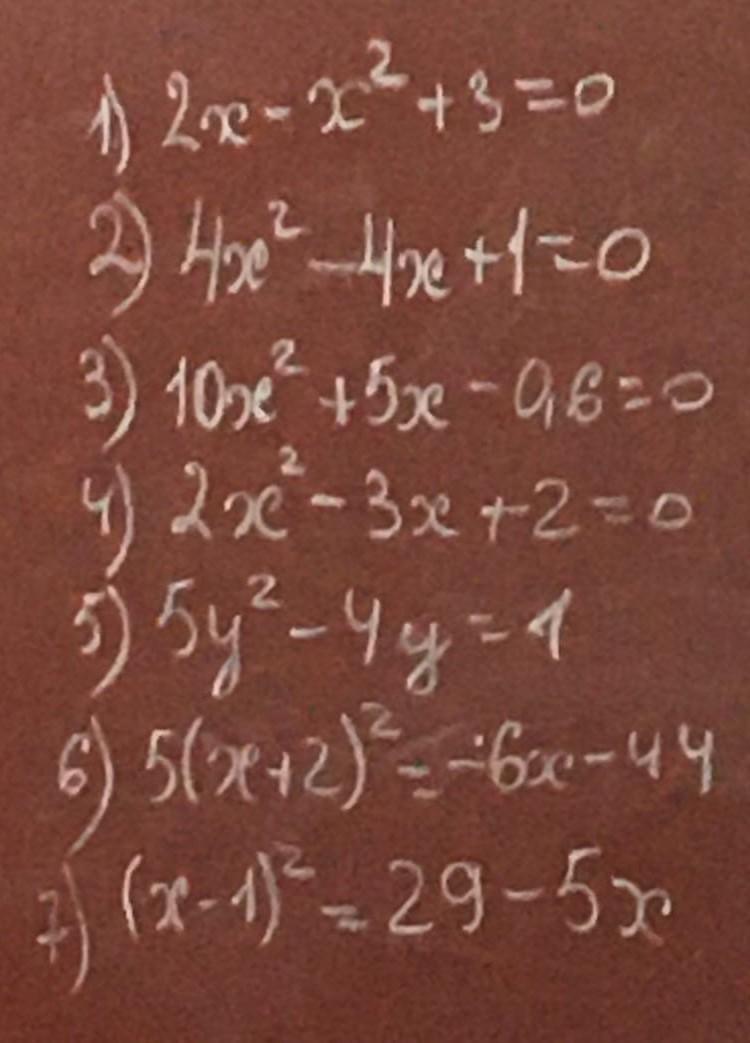 1) 2x - x² + 3 = 0
2) 4x² - 4x + 1 = 0
3) 10x² + 5x - 0,6 = 0
4) 2x² - 3x + 2 = 0
5) 5y² - 4y = 1
6) 5(x+2)² = -6x - 44
7) (x-1)² = 29 - 5x